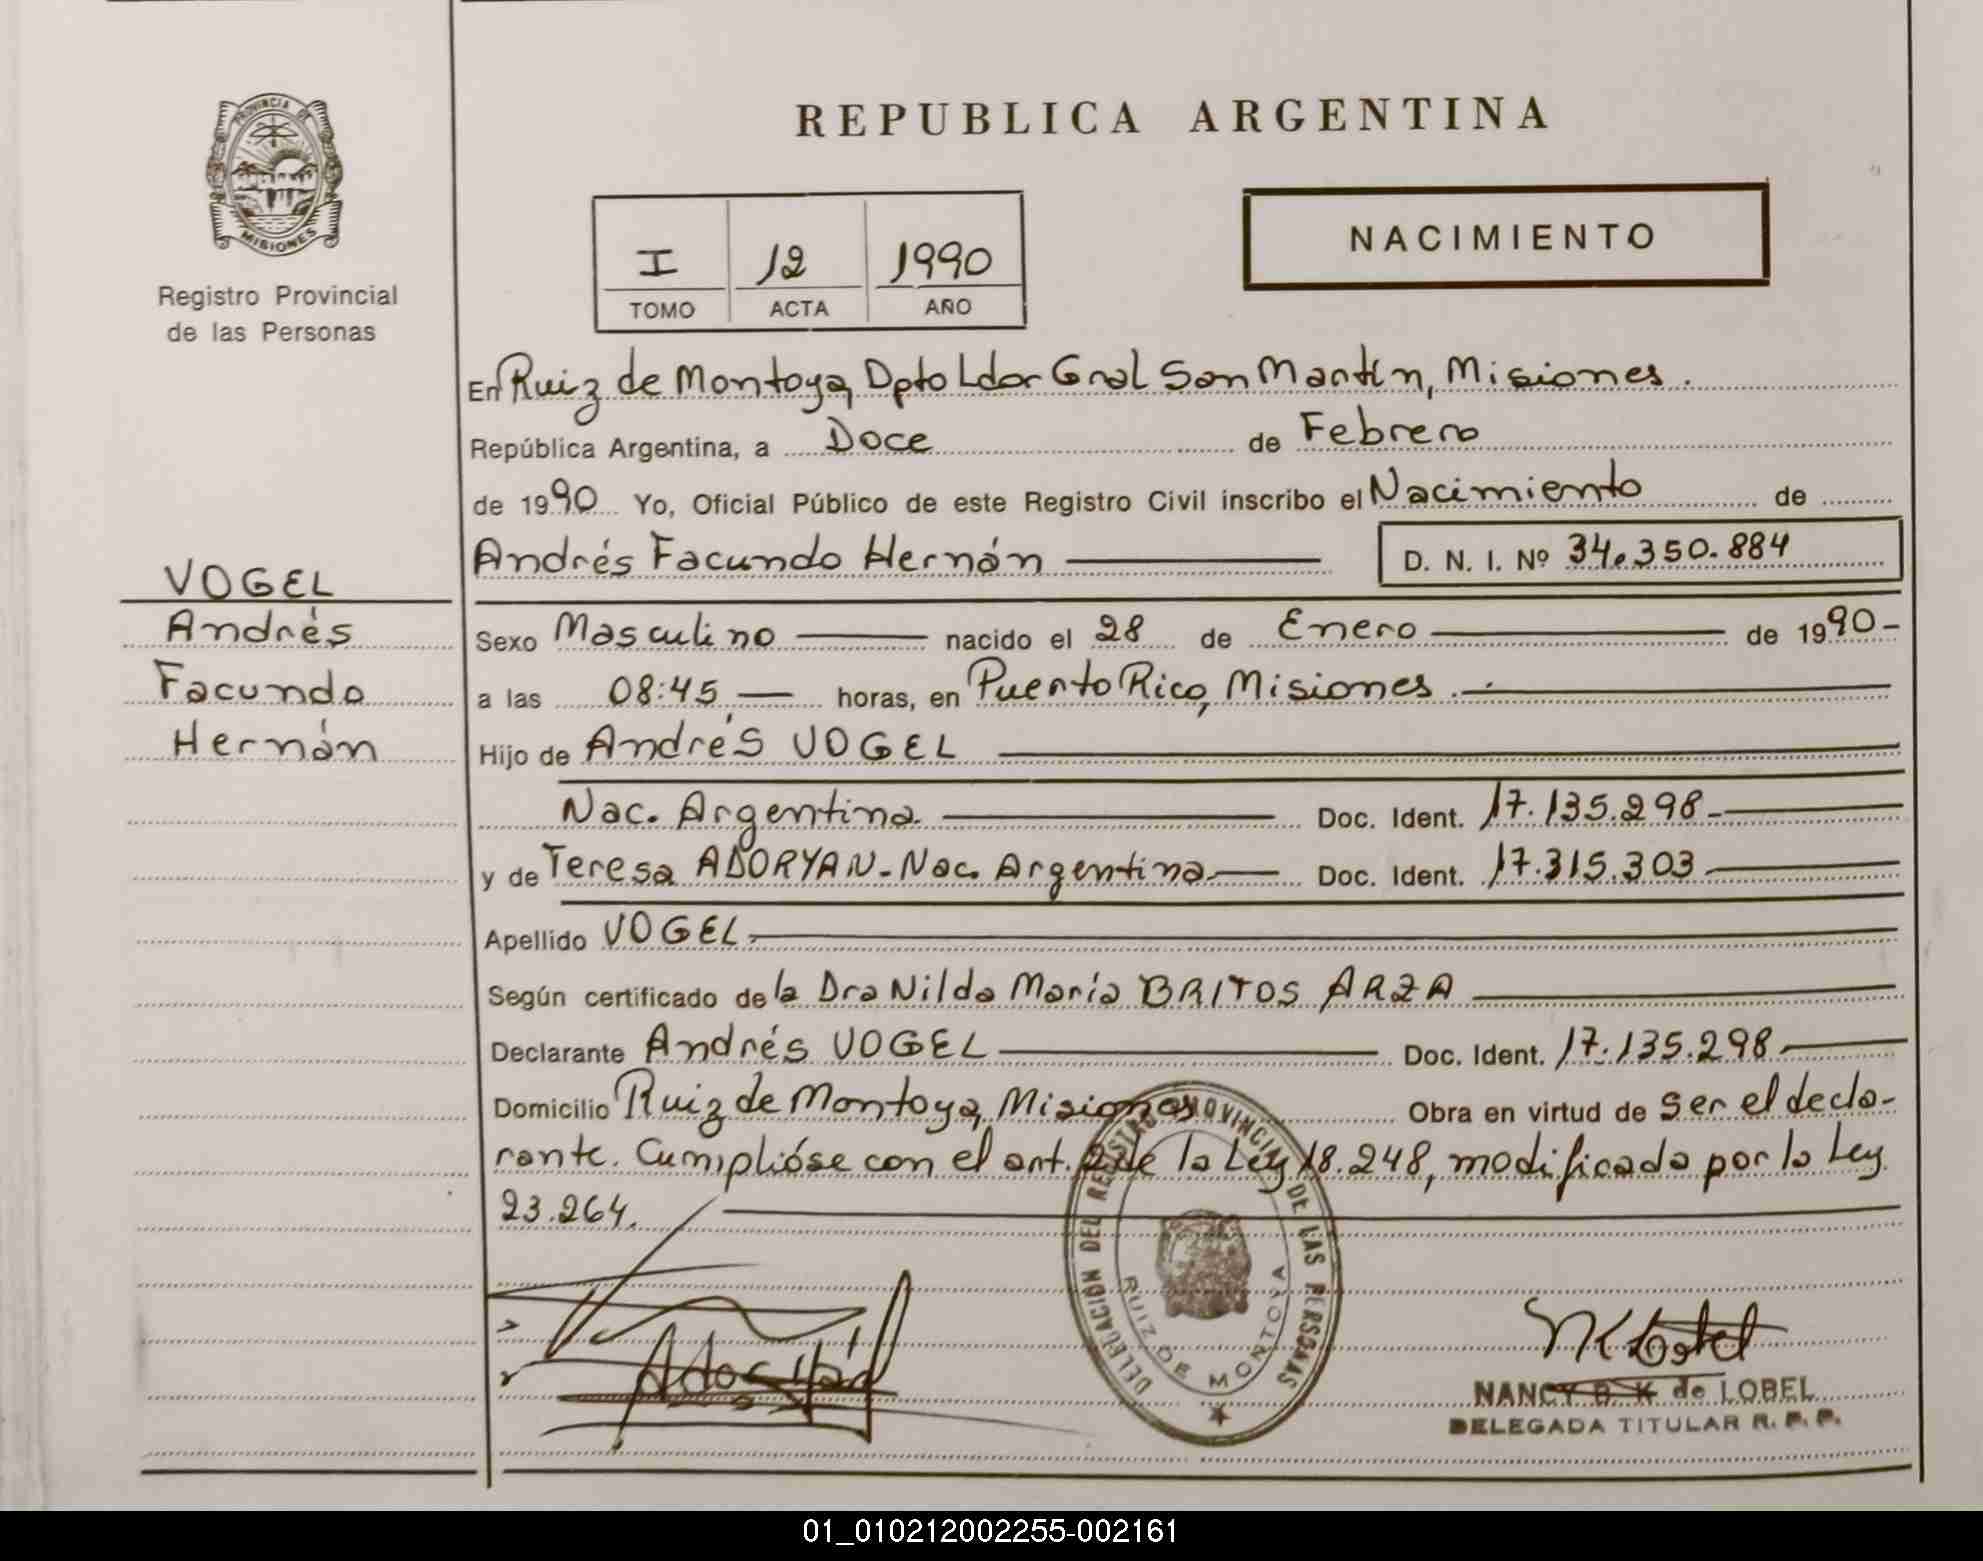 PROVINCIA DE
MISIONES
Registro Provincial
de las Personas
REPUBLICA ARGENTINA
I 12 1990
TOMO ACTA AÑO
NACIMIENTO
En Ruiz de Montoya, Dpto Ldor Gral San Martín, Misiones.
República Argentina, a Doce de Febrero
de 1990 Yo, Oficial Público de este Registro Civil inscribo el Nacimiento de
Andrés Facundo Hernán D. N. I. Nº 34.350.884
VOGEL
Andrés
Facundo
Hernán
Sexo Masculino nacido el 28 de Enero de 1990-
a las 08:45 horas, en Puerto Rico, Misiones.-
Hijo de Andrés VOGEL
Nac. Argentina Doc. Ident. 17.135.298-
y de Teresa ADORYAN-Nac. Argentina Doc. Ident. 17.315.303
Apellido VOGEL
Según certificado de la Dra Nilda María BRITOS ARZA
Declarante Andrés VOGEL Doc. Ident. 17.135.298
Domicilio Ruiz de Montoya, Misiones Obra en virtud de ser el decla-
rante. Cumplióse con el art. 2 de la Ley 18.248, modificada por la Ley
23.264.
DELEGACION DEL REGISTRO PROVINCIAL DE LAS PERSONAS
RUIZ DE MONTOYA
NANCY B. K de LOBEL
DELEGADA TITULAR R. P. P.
01_010212002255-002161